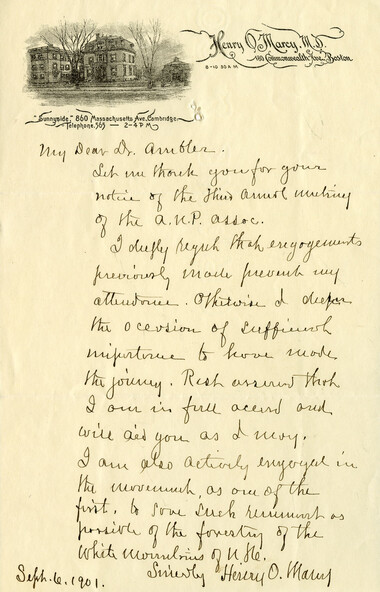 Henry O. Marcy, M.D.
180 Commonwealth Ave., Boston
8-10 30 A M
"Sunnyside," 860 Massachusetts Ave. Cambridge.
Telephone, 565 — 2-4 P.M.
My Dear Dr. Ambler.
Let me thank you for your
notice of the third annual meeting
of the A.N.P. Assoc.
I deeply regret that engagements
previously made prevent my
attendance. Otherwise I deem
the occasion of sufficient
importance to have made
the journey. Rest assured that
I am in full accord and
will aid you as I may.
I am also actively engaged in
the movement, as one of the
first, to save such remnant as
possible of the forestry of the
White Mountains of N.H.
Sincerely Henry O. Marcy
Sept. 6. 1901.